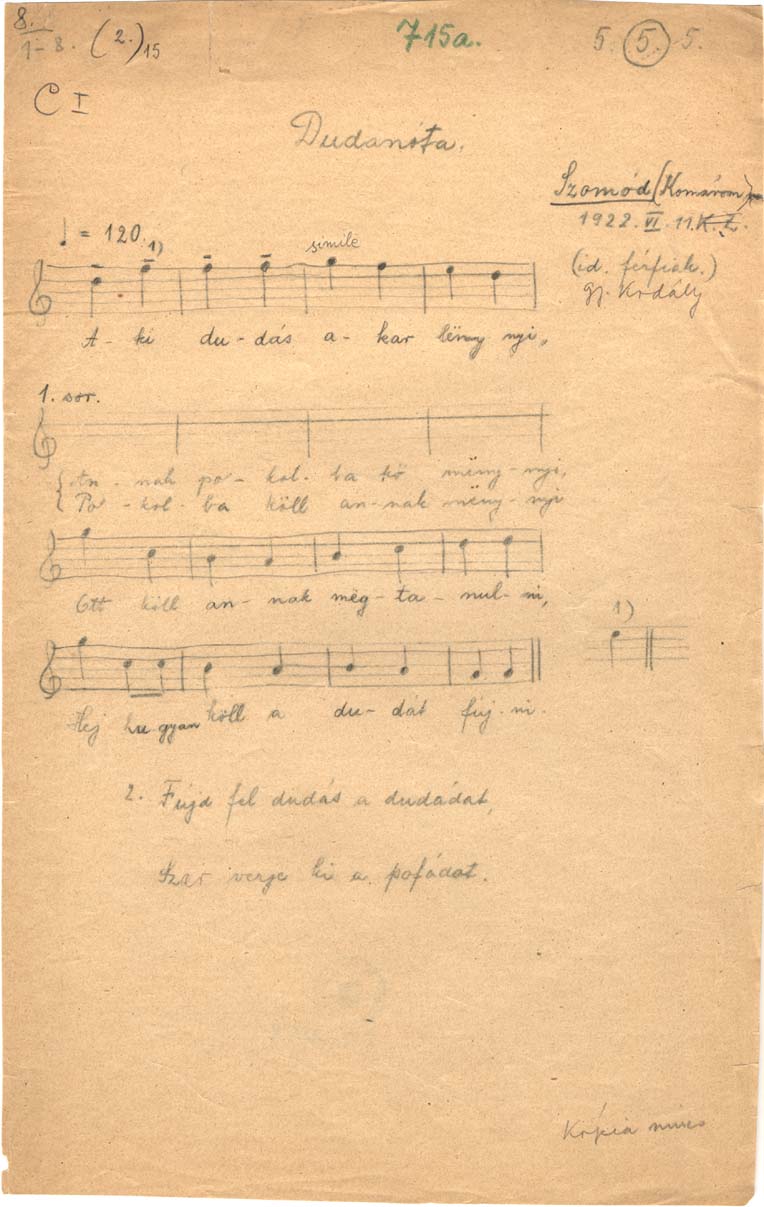 8.
1-8. (2.) 15
715a.
5. 5. 5.
C I
Dudanóta.
Szomód (Komárom)
1922. VI. 11. K. Z.
(id. férfiak.)
gy. Kodály
♩ = 120.
1)
simile
A- ki du- dás a- kar lënny nyi,
1. sor.
An- nak po- kol- ba kő mëny- nyi,
Po- kol- ba köll an- nak mëny- nyi
Ott köll an- nak mëg- ta- nul- ni,
1)
Hej hu gyan köll a du- dát fúj- ni.
2. Fújd fel dudás a dudádat,
Szar verje ki a pofádat.
Kópia nincs